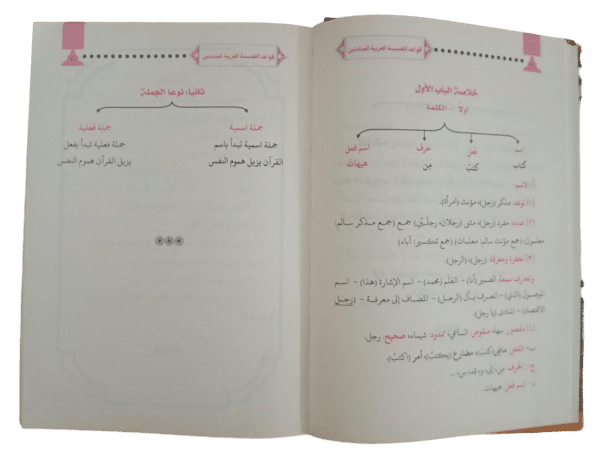 قواعد اللغة العربية للمبتدئين
خلاصة الباب الأول
أولا - الكلمة
اسم فعل حرف اسم فعل
كتاب كتب من هيهات
أ- الاسم
(١) نوعه: مذكر (رجل)، مؤنث (امرأة).
(٢) عدده: مفرد (رجل)، مثنى (رجلان، رجلين) جمع (جمع مذكر سالم:
معلمون) (جمع مؤنث سالم: معلمات) (جمع تكسير: آباء)
(٣) نكرة ومعرفة (رجل)، (الرجل).
والمعارف سبعة: الضمير (أنا) - العلم (محمد) - اسم الإشارة (هذا) - اسم
الموصول (الذي) - المعرف بـأل (الرجل) - المضاف إلى معرفة - (رجل
الاقتصاد) - المنادى (يا رجل)
(٤) مقصور: مها، منقوص: الساقي، ممدود: شيماء، صحيح: رجل.
ب- الفعل: ماضي (كتب)، مضارع (يكتب)، أمر (اكتب).
ج- الحرف: من، إلى، و، قد، س، ...
د- اسم فعل: هيهات.
قواعد اللغة العربية للمبتدئين
ثانيا: نوعا الجملة
جملة اسمية جملة فعلية
جملة اسمية تبدأ باسم جملة فعلية تبدأ بفعل
القرآن يزيل هموم النفس يزيل القرآن هموم النفس